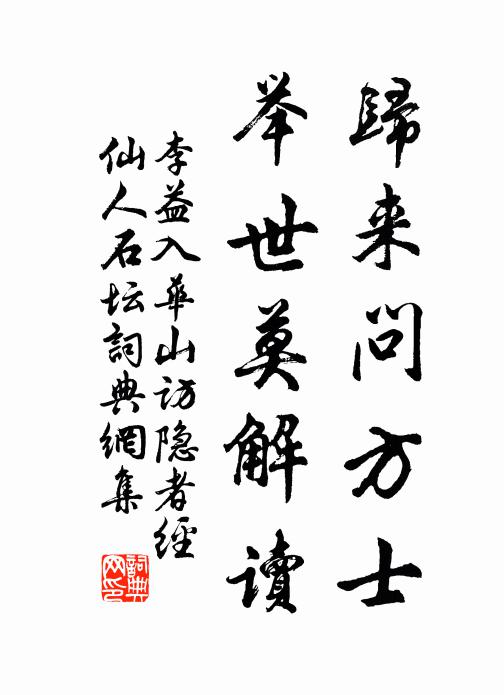 歸来问方士
举世莫解讀
李益入華山访隐者經
仙人石坛詞典網集
詞典网印